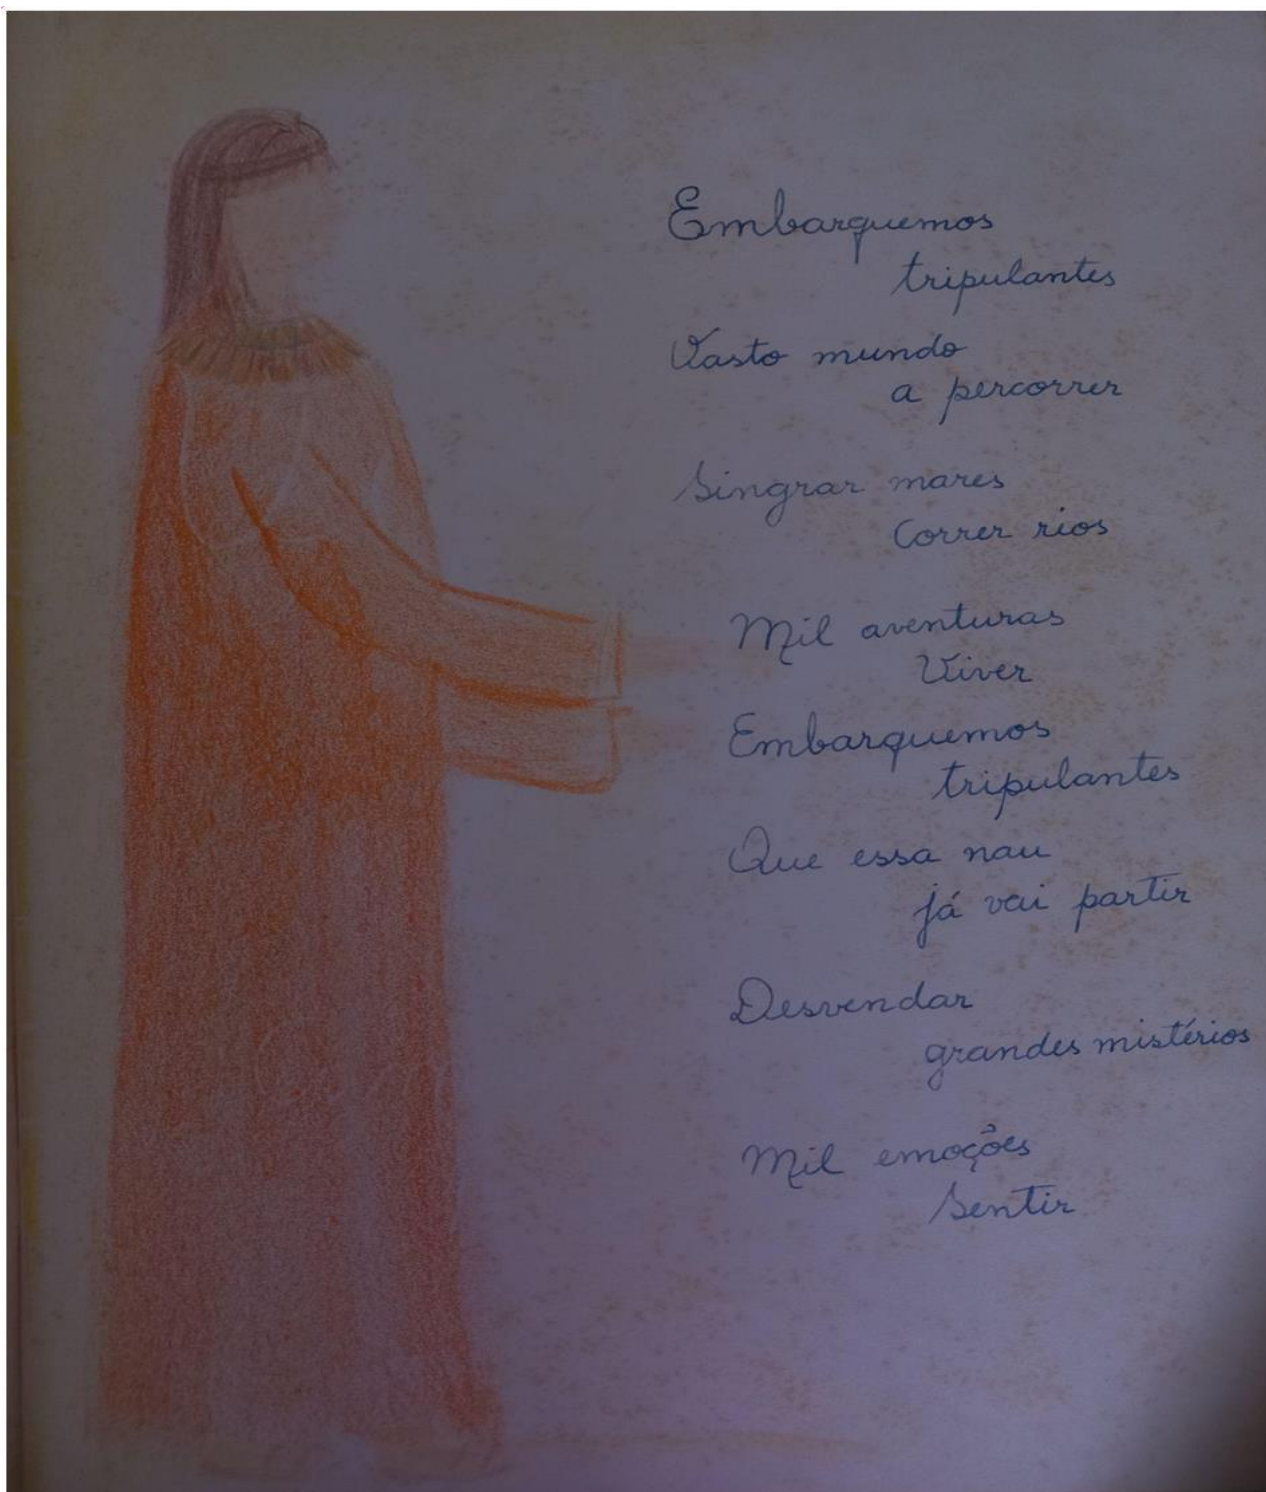 Embarquemos
tripulantes
Vasto mundo
a percorrer
Singrar mares
Correr rios
Mil aventuras
Viver
Embarquemos
tripulantes
Que essa nau
já vai partir
Desvendar
grandes mistérios
Mil emoções
Sentir